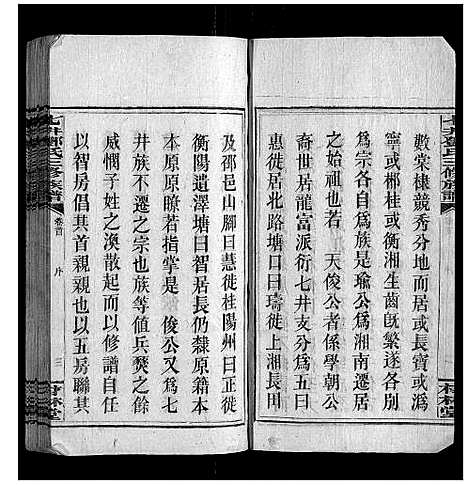 數棠棣競秀分地而居或長寶或潙
寧或郴桂或衡湘生齒旣繁遂各別
爲宗各自爲族是瑜公爲湘南遷居
之始祖也若 天俊公者係學朝公
裔世居龍富派衍七井支五曰
惠徙居北路塘口曰璹徙上湘長田
及邵邑山腳曰慧徙桂陽州曰正徙
衡陽遺澤塘曰智居長仍隸原籍本
本原原瞭若指掌是 俊公又爲七
井族不遷之宗也族等值兵燹之餘
慼憫子姓之渙散起而以修譜自任
以智房倡其首親親也以五房聯其
七井鄧氏三修族譜
卷首 序 三